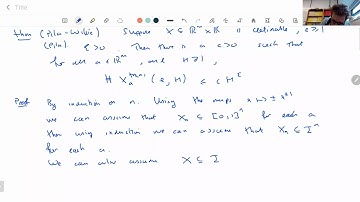 Title
Thm (Pila-Wilkie) Suppose X ⊆ ℝ^m × ℝ is definable, e ≥ 1
(Pila). ε > 0 Then there is a c > 0 such that
for all a ∈ ℝ^m, and H ≥ 1,
# X_a (e, H) ≤ c H^ε
Proof By induction on n. Using the maps x ↦ ± x^±1
we can assume that X_a ⊆ [0,1]^n for each a
then using induction we can assume that X_a ⊆ I^n
for each a.
We can also assume X ⊆ I